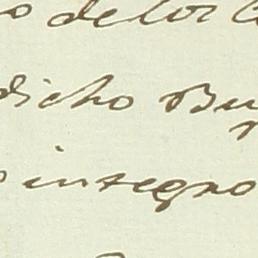 o de los
dicho Bu
integro